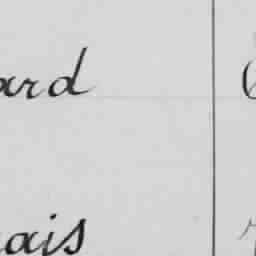 ard
ais